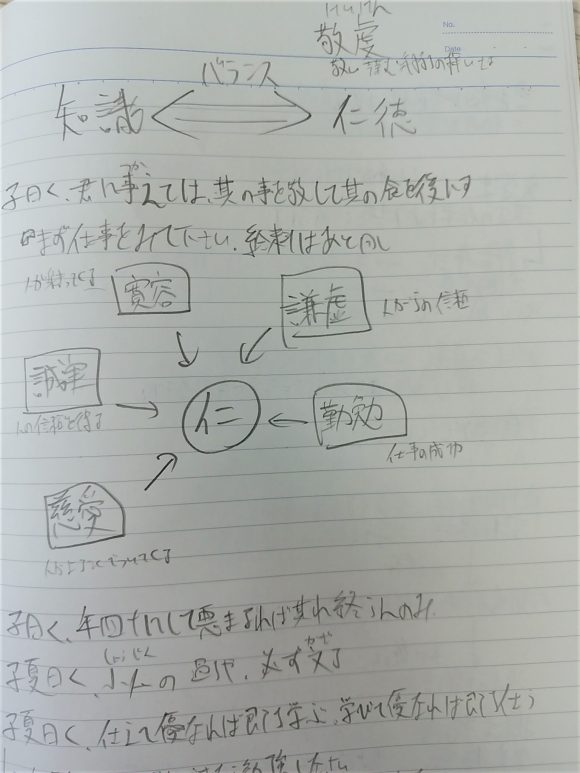 No.
けいけん
敬虔
Date
バランス
知識
仁徳
つか
子曰く、君に事えては、其の事を敬して其の食を後にす
まず仕事をみて下さい、給料はあと回し
寛容
人が集ってくる
謙虚
人からの信頼
誠実
人の信頼を得る
仁
勤勉
仕事の成功
慈愛
子曰く、年四十にして悪まるれば其れ終らんのみ
しょうじん
かざ
子夏曰く、小人の過や、必ず文る
子夏曰く、仕えて優なれば即ち学ぶ、学びて優なれば即ち仕う